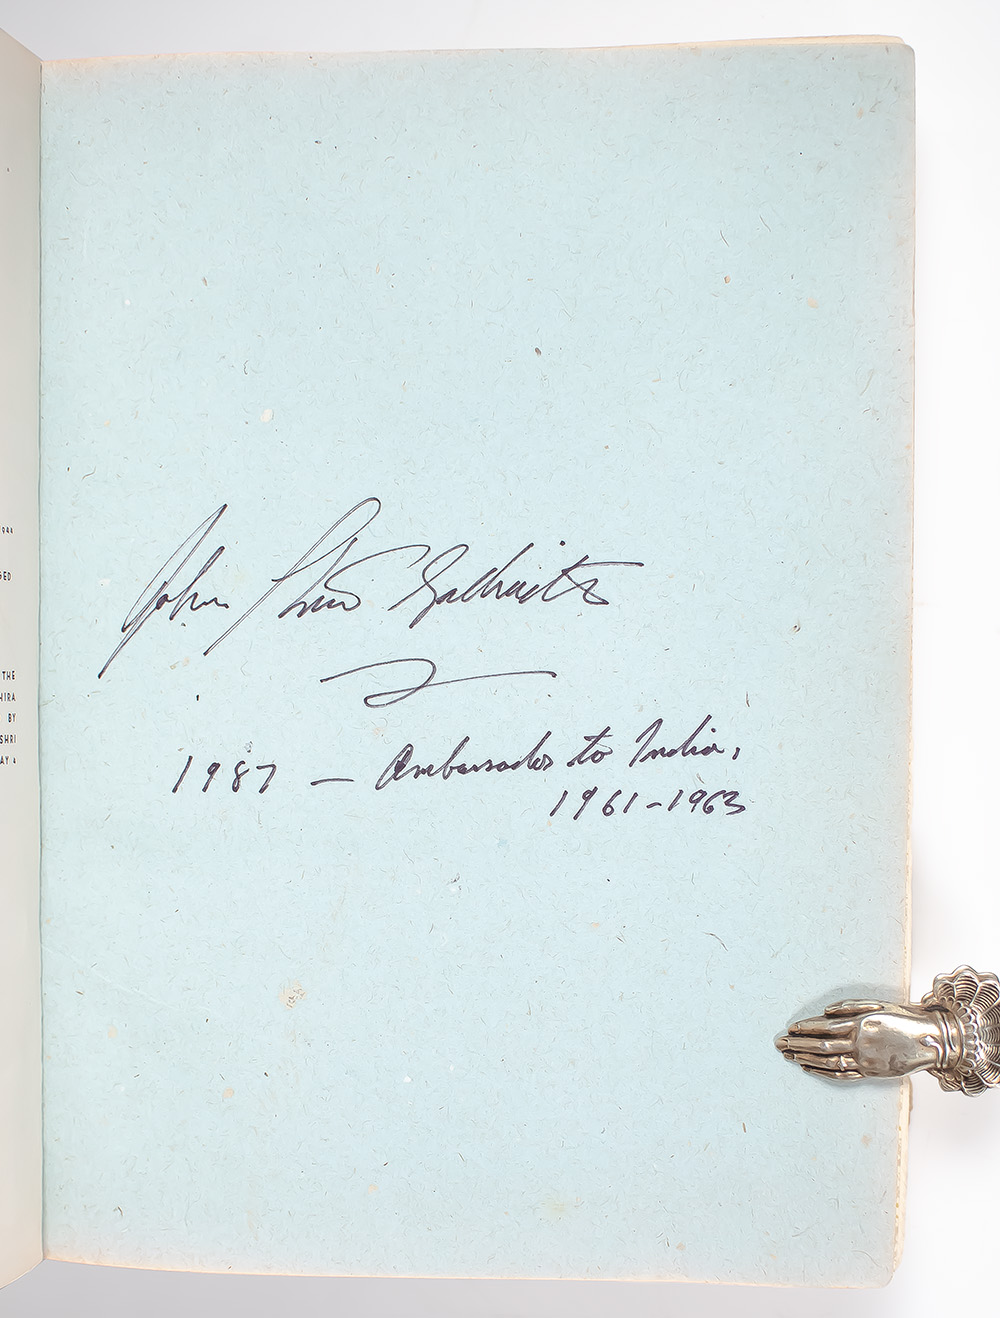 1944
GED
THE
HIRA
BY
SHRI
AY 4
John Kenneth Galbraith
1987 — Ambassador to India,
1961-1963